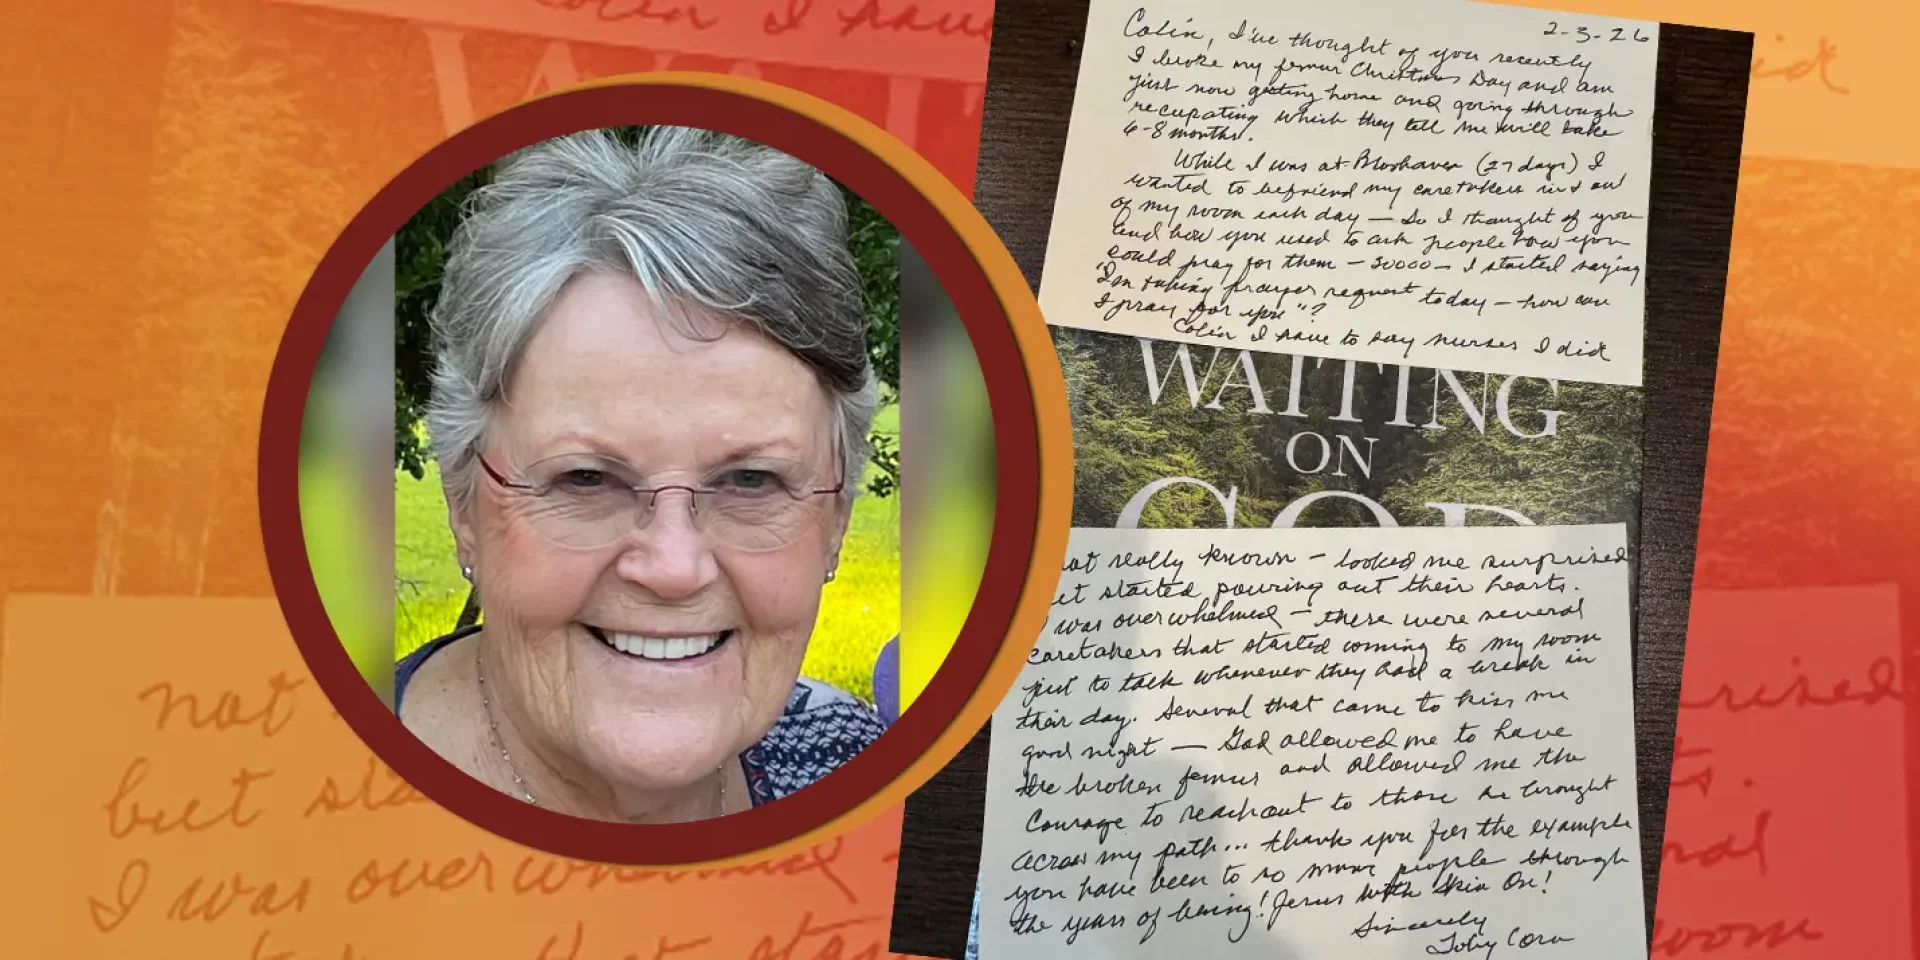 2-3-26
Colin, I've thought of you recently
I broke my femur Christmas Day and am
just now getting home and going through
recuperating which they tell me will take
6-8 months.
While I was at (27 days) I
wanted to befriend my caretakers in & out
of my room each day — So I thought of you
and how you used to ask people how you
could pray for them — SOOOO — I started saying
"I'm taking prayer request today — how can
I pray for you"?
Colin I have to say nurses I did
WAITING
ON
GOD
not really known — looked me surprised
but started pouring out their hearts.
I was overwhelmed — there were several
caretakers that started coming to my room
just to talk whenever they had a break in
their day. Several that came to kiss me
good night — God allowed me to have
the broken femur and allowed me the
courage to reach out to those he brought
across my path... thank you for the example
you have been to so many people through
the years of being! Jesus with Skin On!
Sincerely
Toby